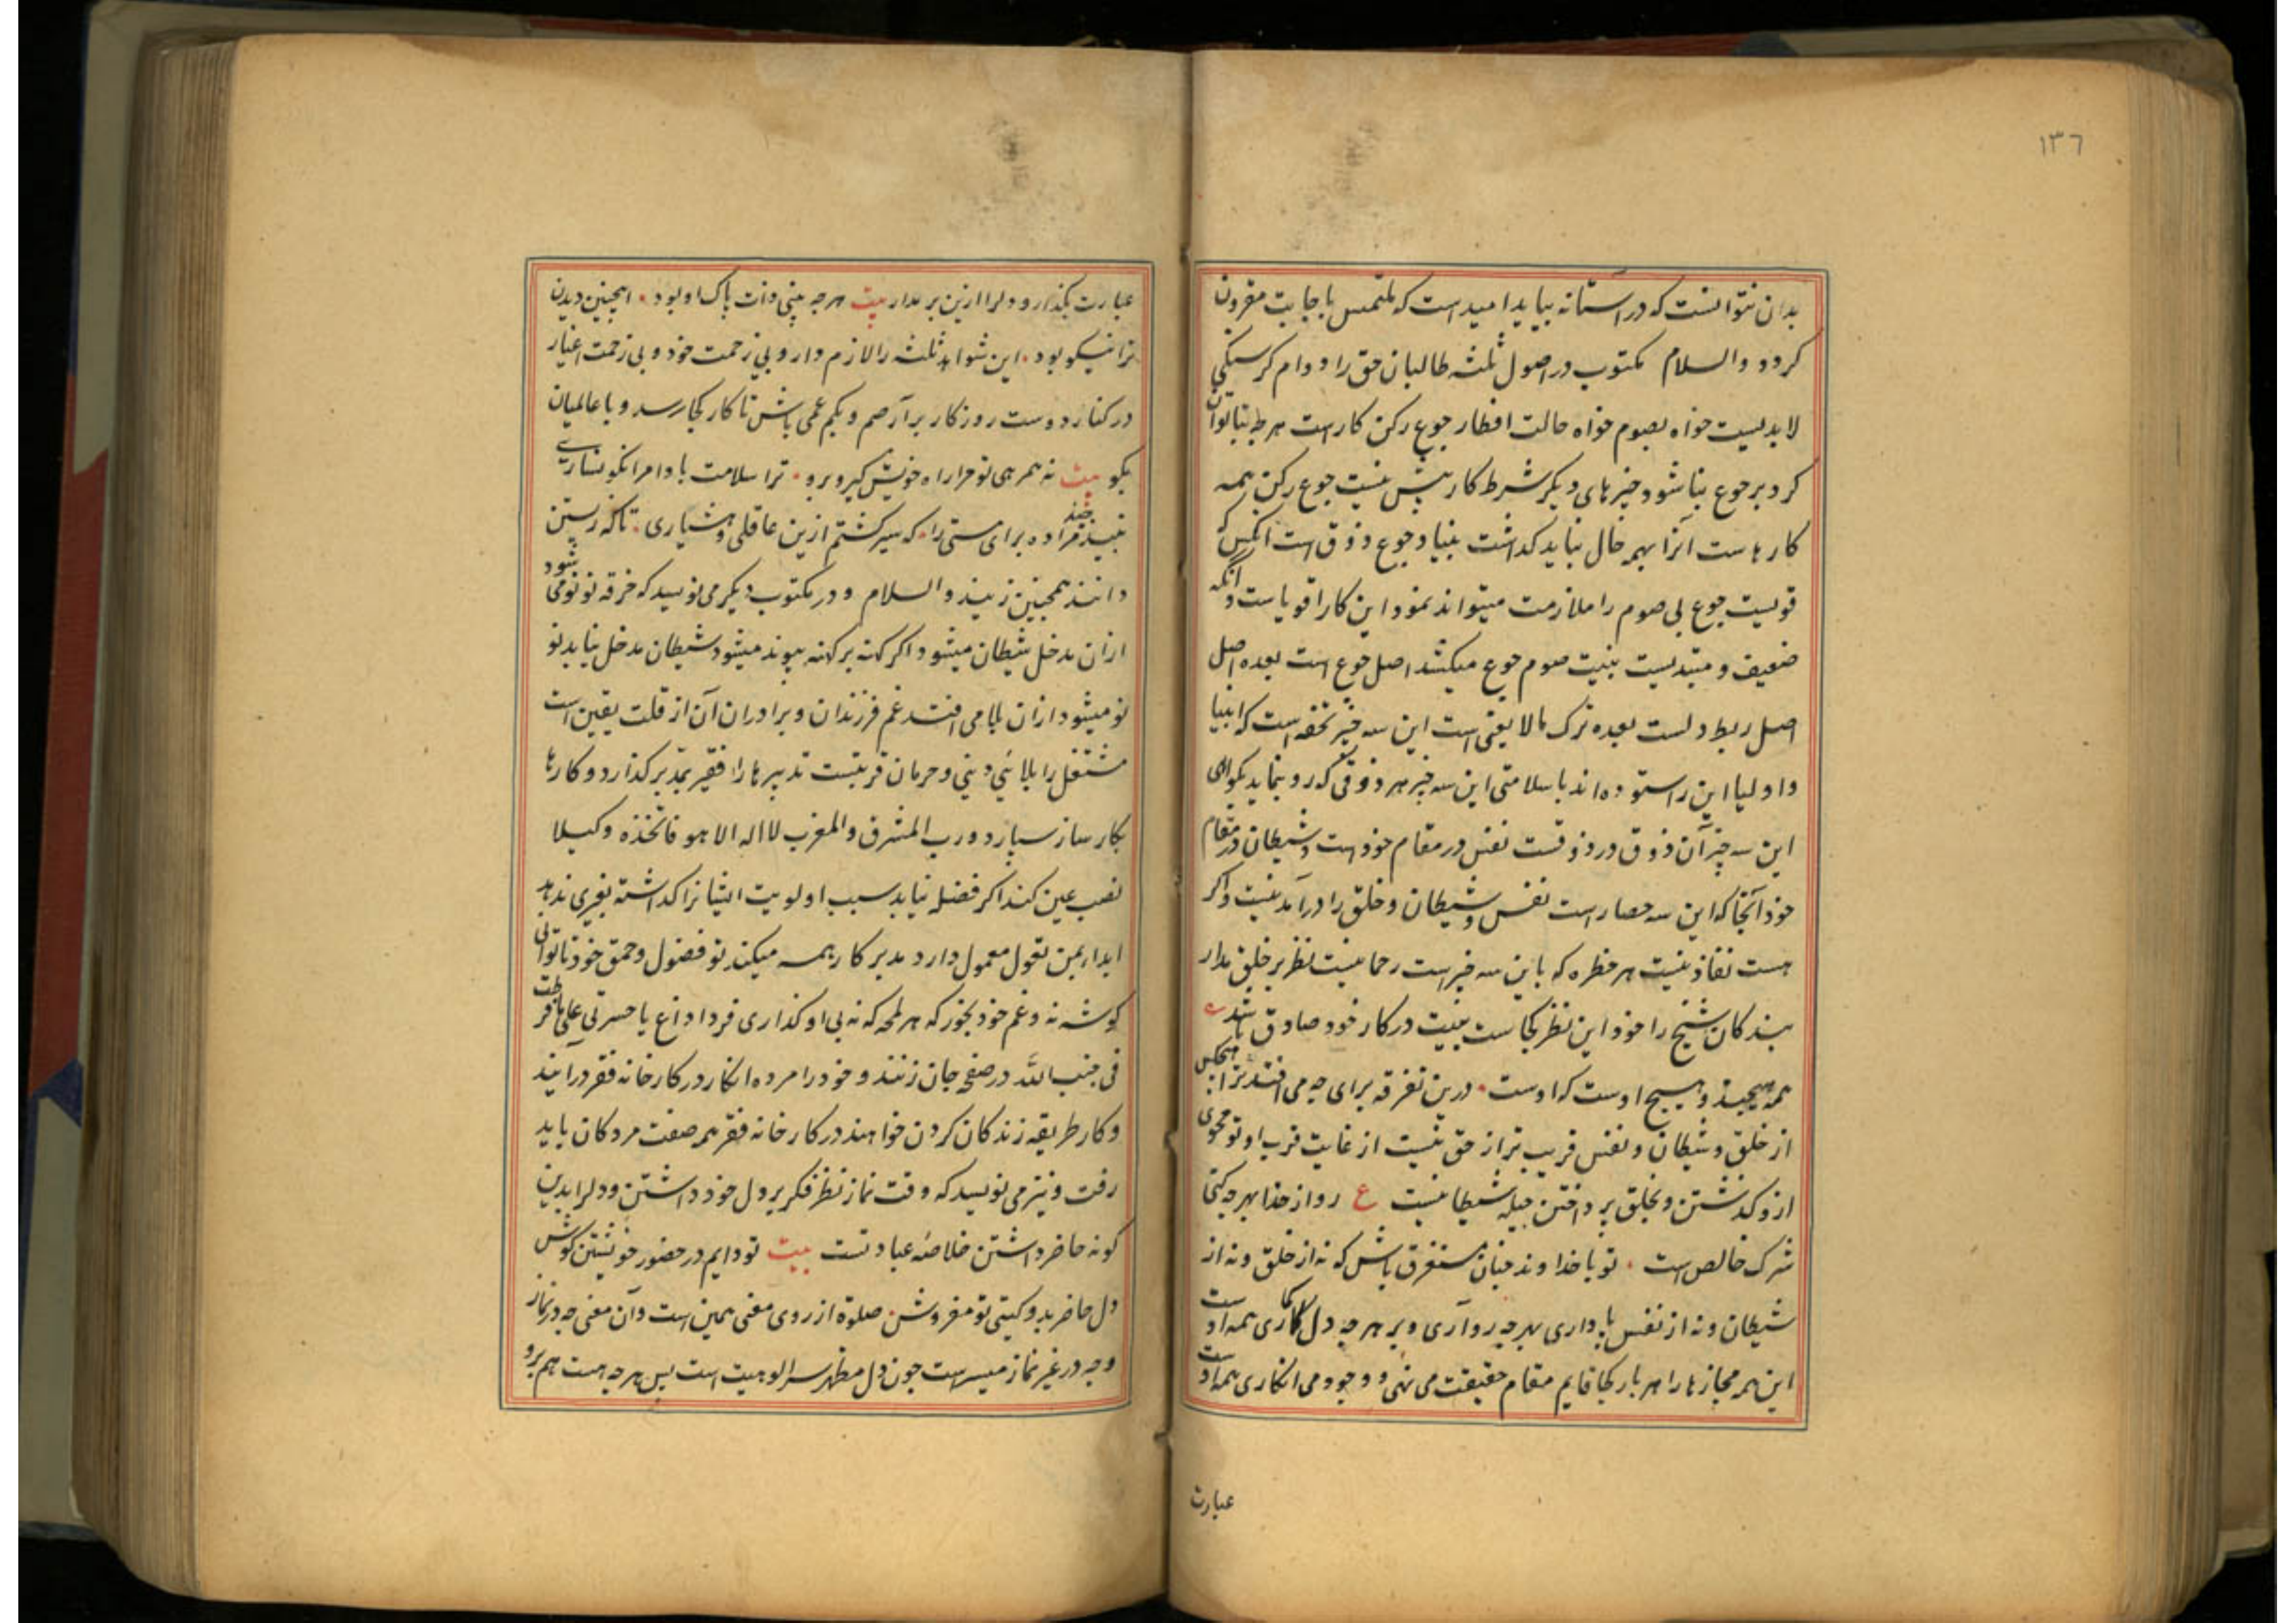 ۱۳۶
بدان نتوانست که در آستانه بیاید امید است که ملتمس باجابت مقرون
کردد والسلام مکتوب در اصول ثلثه طالبان حق را دوام کرسنکی
لابدیست خواه بصوم خواه حالت افطار جوع رکن کار است هر چه بنا توان
کرد بر جوع بنا شود چیزهای دیکر شرط کار بیش نیست جوع رکن همه
کارهاست آنرا بهمه حال نباید کذاشت بنیاد جوع ذوق است آنکس که
قویست جوع بی صوم را ملازمت میتواند نمود این کار اقویاست و آنکه
ضعیف و مبتدیست بنیت صوم جوع میکشد اصل جوع است بعده اصل
اصل ربط دلست بعده ترک مالایعنی است این سه چیز تحفه است که انبیا
و اولیا این را ستوده اند با سلامتی این سه چیز هر ذوقی که رو نماید بکواهی
این سه چیز آن ذوق در ذوقست نفس در مقام خود است و شیطان در مقام
خود آنجا که این سه حصار است نفس و شیطان و خلق را درآمد نیست و اکر
هست نفاذ نیست هر خطره که با این سه چیز است رحمانیست نظر بر خلق مدار
بندکان شیخ را خود این نظر کجاست بیت در کار خود صادق باشد
همه هیچند و هیچ اوست که اوست درین تفرقه برای چه می افتد ترا هیچکس
از خلق و شیطان و نفس قریب تر از حق نیست از غایت قرب او تو محوی
ازو کذشتن و بخلق پرداختن حیله شیطانیست ع روا از خدا بهر چه کنی
شرک خالص است تو با خداوند چنان مستغرق باش که نه از خلق و نه از
شیطان و نه از نفس یاد داری بهر چه رو آری و بر هر چه دل کماری همه اوست
این همه مجازها را هر بار کجا قایم مقام حقیقت می نهی و وجود می انکاری همه اوست
عبارت
عبارت بکذار و دلرا ازین بر مدار بیت هر چه بینی ذات پاک او بود اینچنین دیدن
ترا نیکو بود این شواهد ثلثه را لازم دار و بی زحمت خود و بی زحمت اغیار
در کنار دوست روزکار برآر صم و بکم عمی باش تا کار کجا رسد و با عالمیان
بکو بیت نه همرهی تو مرا راه خویش کیر و برو ترا سلامت بادا مرا نکونساری
نبیذ چند مرا ده برای مستی را که سیر کشتم ازین عاقلی و هشیاری تا که زیستن
دانند همچنین زیند والسلام و در مکتوب دیکر می نویسد که خرقه تو نو می شود
ازان مدخل شیطان میشود اکر کهنه بر کهنه پیوند میشود شیطان مدخل نیابد نو
نو میشود ازان بلا می افتد غم فرزندان و برادران آن از قلت یقین است
مشتغل را بلائی دینی و حرمان قربتست تدبیرها را فقیر بمدبر کذارد و کارها
بکارساز سپارد و رب المشرق والمغرب لا اله الا هو فاتخذه وکیلا
نصب عین کند اکر فضله نیابد سبب اولویت ایشانرا کذاشته بغیری ندهد
ابدا بمن تعول معمول دارد مدبر کار همه میکند تو فضول و حمق خود تا توانی
کوشه نه و غم خود بخور که هر لمحه که نه بی او کذاری فردا داغ یا حسرتی علی ما فرطت
فی جنب الله در صفحه جان زنند و خود را مرده انکار در کارخانه فقر درآیند
و کار طریقه زندکان کردن خواهند در کارخانه فقر هم صفت مردکان باید
رفت و نیز می نویسد که وقت نماز نظر فکر بر دل خود داشتن و دلرا بدین
کونه حاضر داشتن خلاصه عبادتست بیت تو دایم در حضور خویشتن کوش
دل حاضر بدو کیتی تو مفروش صلوة از روی معنی همین است و آن معنی چه در نماز
و چه در غیر نماز میسر است چون دل مظهر سر الوهیت است پس هر چه هست هم برو